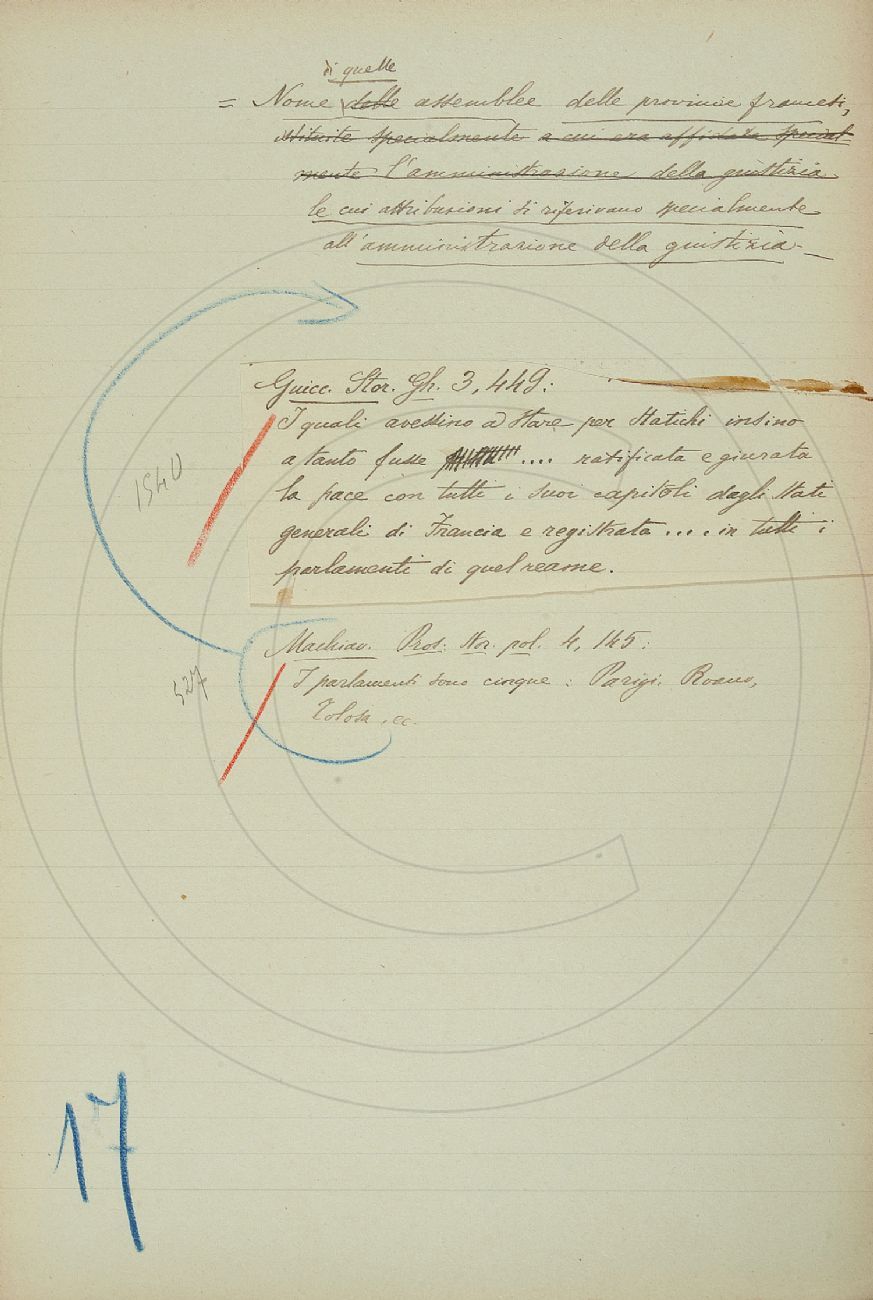 di quelle
= Nome delle assemblee delle provincie francesi,
istituite specialmente a cui era affidata special-
mente l'amministrazione della giustizia
le cui attribuzioni si riferivano specialmente
all'amministrazione della giustizia. —
Guicc. Stor. Gh. 3, 449:
I quali avessino a stare per statichi insino
a tanto fusse .... ratificata e giurata
la pace con tutti i suoi capitoli dagli stati
generali di Francia e registrata .... in tutti i
parlamenti di quel reame.
1540
Machiav. Pros. stor. pol. 4, 145:
I parlamenti sono cinque: Parigi, Roano,
Tolosa, ec.
527
17